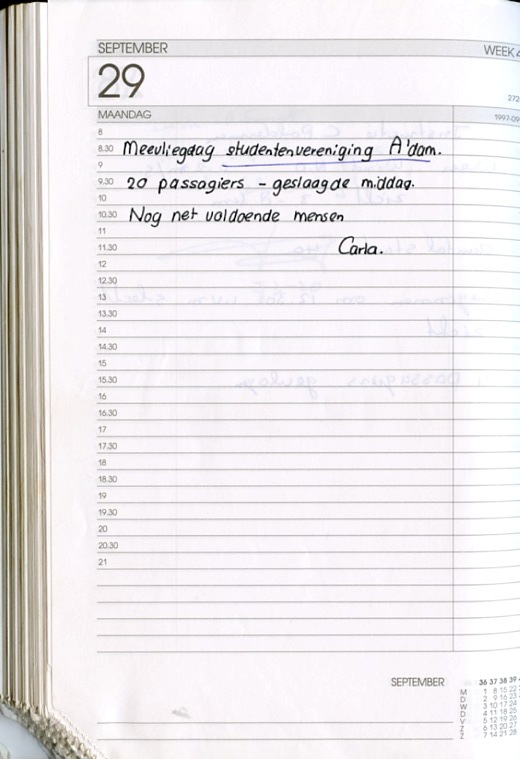 SEPTEMBER WEEK 4
29
272
MAANDAG 1997-09
8
8.30 Meevliegdag studentenvereniging A'dam.
9
9.30 20 passagiers - geslaagde middag.
10
10.30 Nog net voldoende mensen
11
11.30 Carla.
12
12.30
13
13.30
14
14.30
15
15.30
16
16.30
17
17.30
18
18.30
19
19.30
20
20.30
21
SEPTEMBER 36 37 38 39
M 1 8 15 22
D 2 9 16 23
W 3 10 17 24
D 4 11 18 25
V 5 12 19 26
Z 6 13 20 27
Z 7 14 21 28